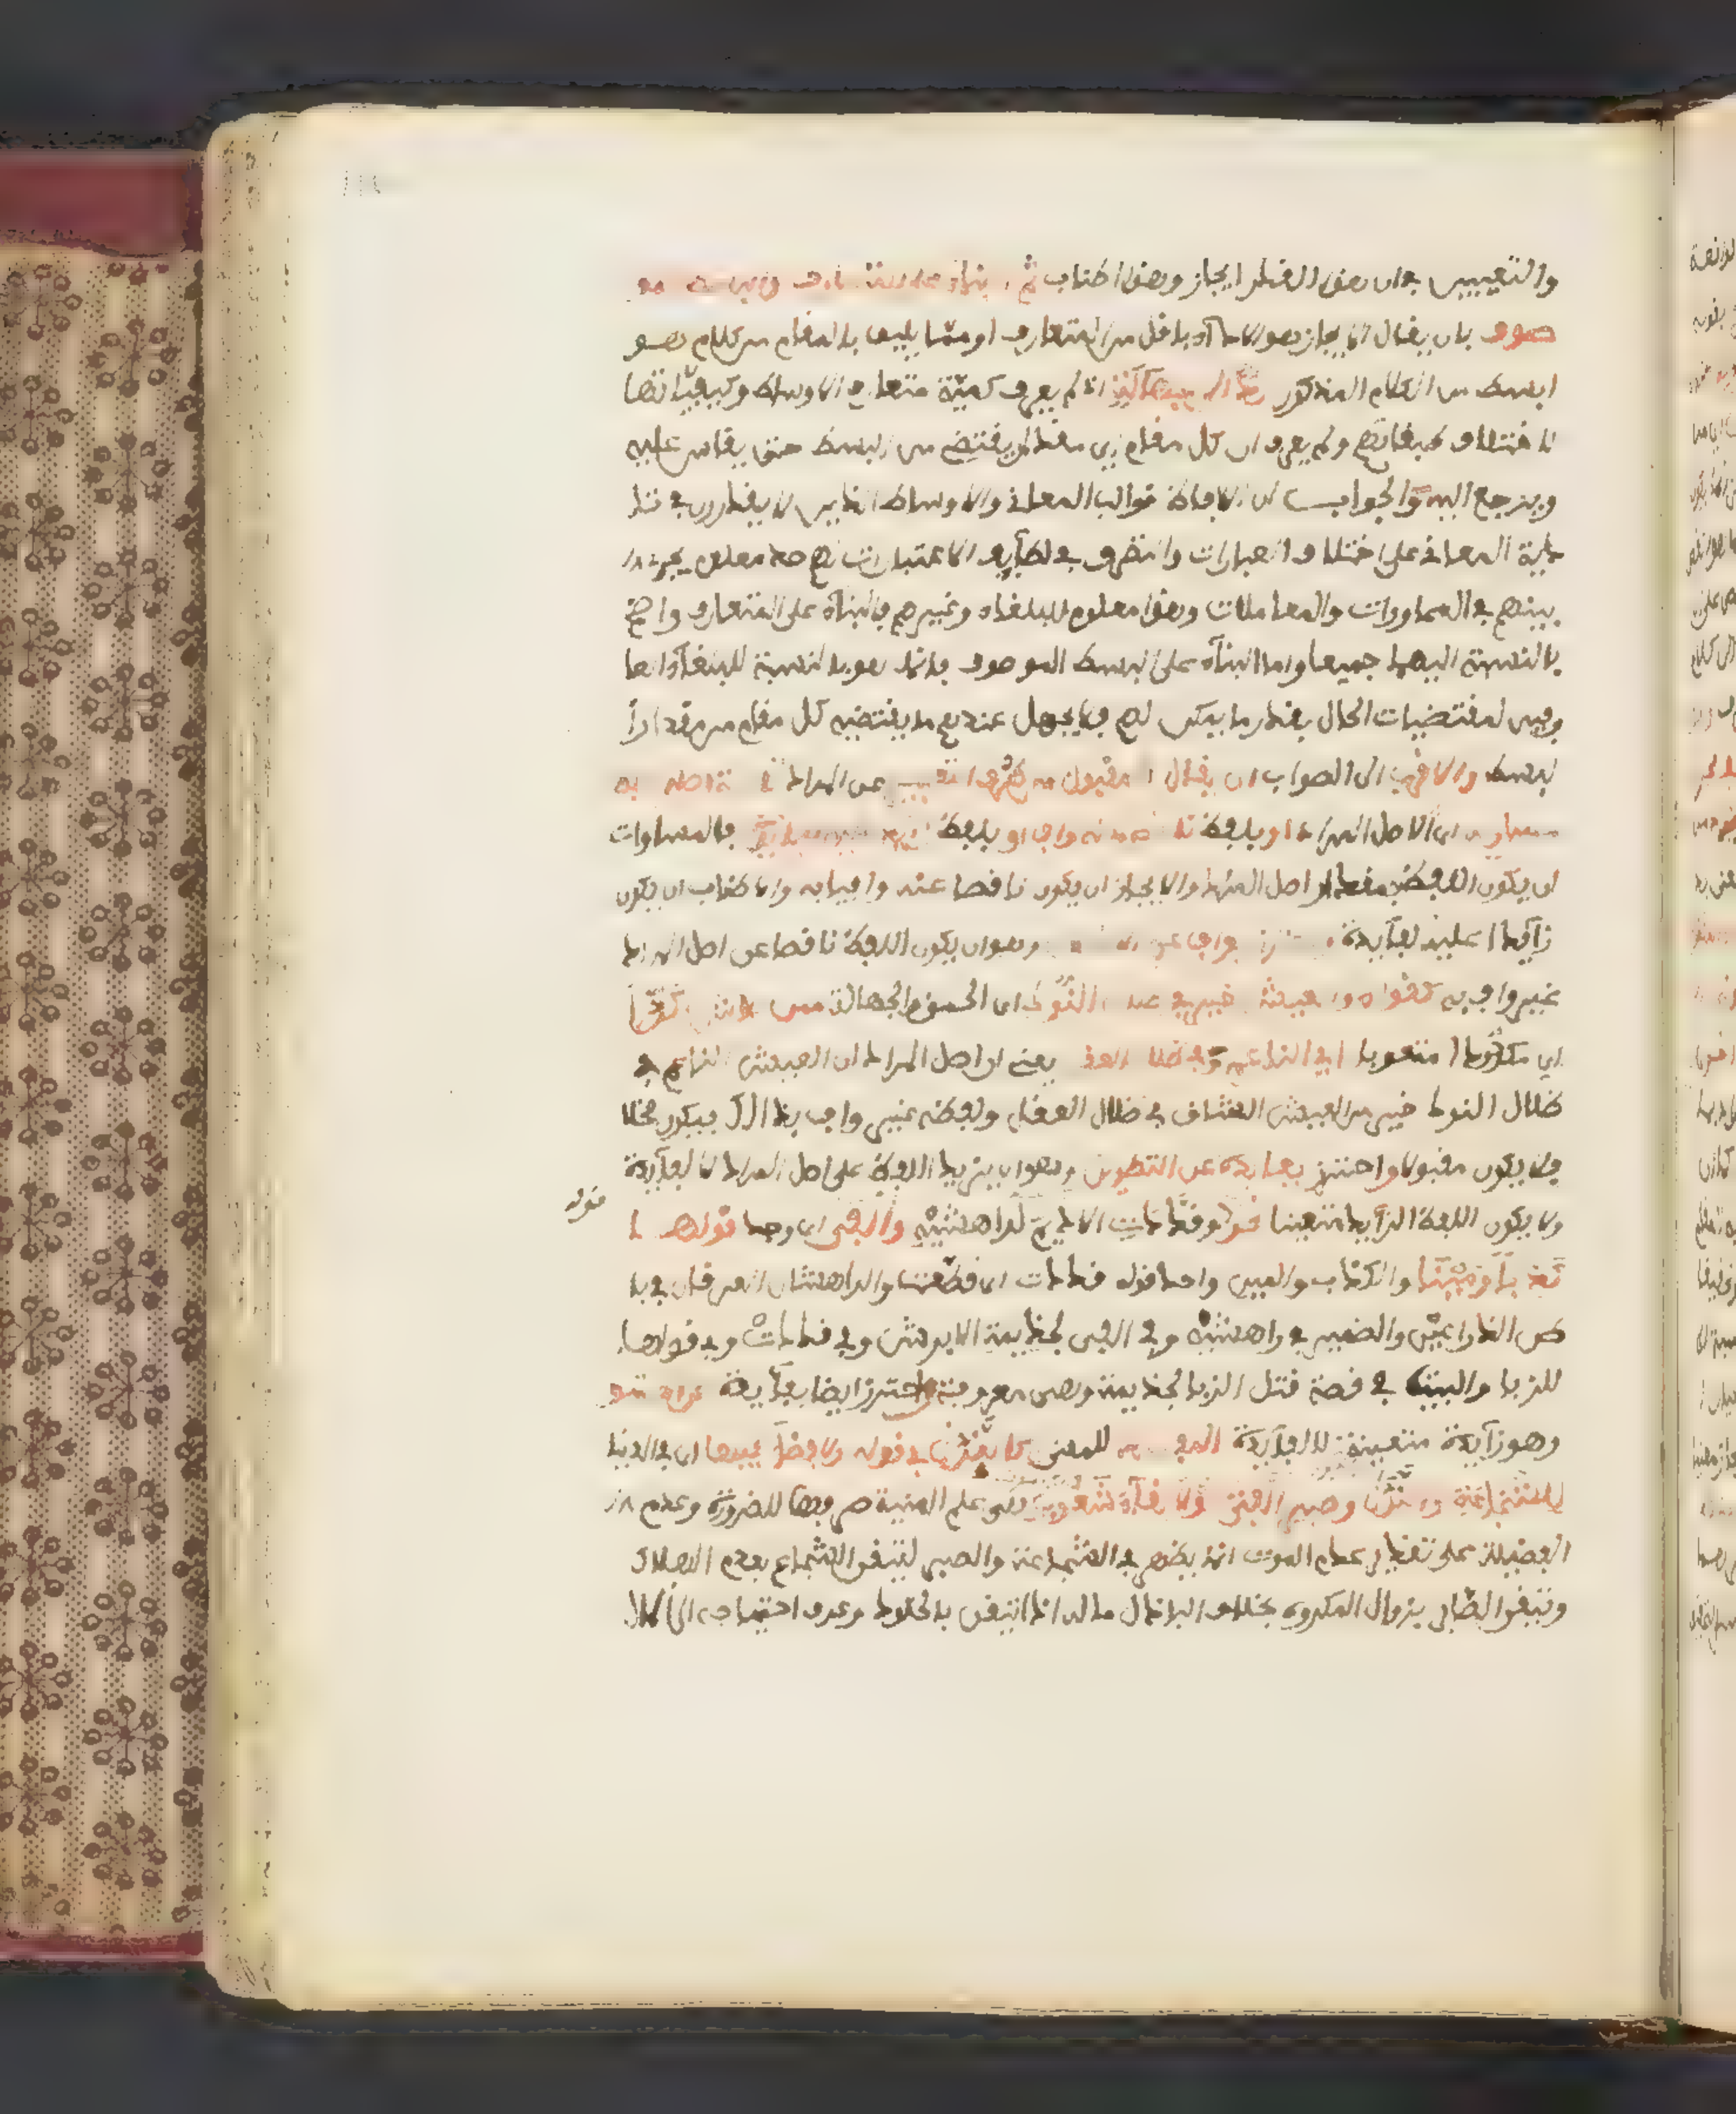 والتعيين بان هذا القدر ايجاز وهذا اطناب ثم البناء على المتعارف والبسط المو
صوف بان يقال الايجاز هو الاداء باقل من المتعارف او مما يليق بالمقام من كلام هو
ابسط من الكلام المذكور رد الى جهالة اذ لم يعرف كمية متعارف الاوساط وكيفيتها
لاختلاف طبقاتهم ولم يعرف ان كل مقام اي مقدار يقتضي من البسط حتى يقاس عليه
ويرجع اليه والجواب ان الالفاظ قوالب المعاني والاوساط الذين لا يقدرون في تا
دية المعاني على اختلاف العبارات والتصرف في لطايف الاعتبارات لهم حد معلوم يجري
بينهم في المحاورات والمعاملات وهذا معلوم للبلغاء وغيرهم فالبناء على المتعارف واضح
بالنسبة اليهما جميعا واما البناء على البسط الموصوف فانما هو بالنسبة للبلغاء العا
رفين لمقتضيات الحال بقدر ما يمكن لهم فلا يجهل عندهم ما يقتضيه كل مقام من مقدار
البسط والاقرب الى الصواب ان يقال المقبول من طرق التعبير عن المراد تادية اصله به
مساو له اي لاصل المراد او بلفظ ناقص عنه واف او بلفظ زايد عليه لفايدة فالمساوات
ان يكون اللفظ بمقدار اصل المراد والايجاز ان يكون ناقصا عنه وافيا به والاطناب ان يكون
زايدا عليه لفايدة واحترز بواف عن الاخلال وهو ان يكون اللفظ ناقصا عن اصل المراد
غير واف به كقوله والعيش خير في ظلال النوك اي الحمق والجهالة ممن عاش كدا
اي مكدودا متعوبا اي الناعم وفي ظلال العقل يعني ان اصل المراد ان العيش الناعم في
ظلال النوك خير من العيش الشاق في ظلال العقل ولفظه غير واف بذالك فيكون مخلا
فلا يكون مقبولا واحترز بفايدة عن التطويل وهو ان يزيد اللفظ على اصل المراد لا لفايدة
ولا يكون اللفظ الزايد متعينا نحو وقددت الاديم لراهشيه والفى اي وجد قولها
كذبا ومينا والكذب والمين واحد قوله قددت اي قطعت والراهشان العرقان في با
طن الذراعين والضمير في راهشيه وفي الفى لجذيمة الابرش وفي قددت وفي قولها
للزبا والبيت في قصة قتل الزبا لجذيمة وهي معروفة واحترز ايضا بفايدة عن الحشو
وهو زايدة متعينة لا لفايدة المفسد للمعنى كالندى في قوله ولا فضل فيها اي في الدنيا
للشجاعة والندى وصبر الفتى لولا لقاء شعوب هي علم المنية صرفها للضرورة وعدم
الفضيلة على تقدير عدم الموت انما يظهر في الشجاعة والصبر لتيقن الشجاع بعدم الهلاك
وتيقن الصابر بزوال المكروه بخلاف الباذل ماله اذا تيقن بالخلود وعرف احتياجه الى المال
قوله